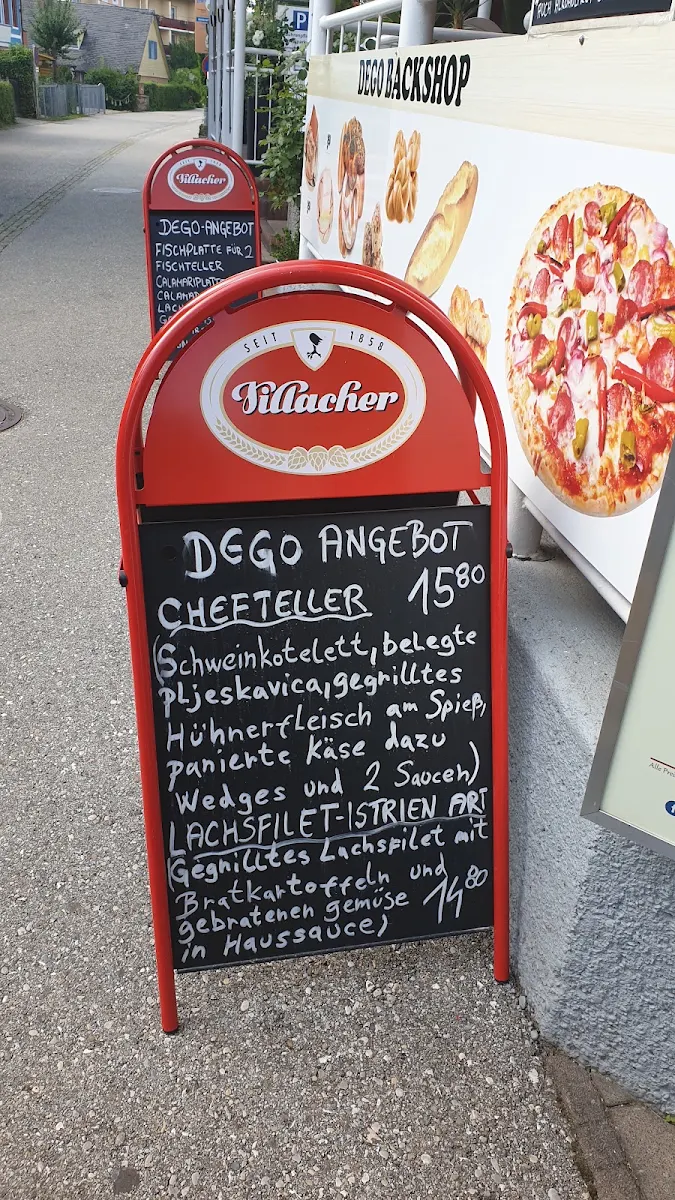 AUCH
P
DEGO BACKSHOP
Villacher
DEGO-ANGEBOT
FISCHPLATTE FÜR 2
FISCHTELLER
CALAMARIPLATTE
SEIT 1858
Villacher
DEGO ANGEBOT
CHEFTELLER 15⁸⁰
(Schweinkotelett, belegte
Pljeskavica, gegrilltes
Hühnerfleisch am Spieß,
panierte Käse dazu
Wedges und 2 Saucen)
LACHSFILET-ISTRIEN ART
(Gegrilltes Lachsfilet mit
Bratkartoffeln und
gebratenen gemüse 14⁸⁰
in Haussauce)
Alle